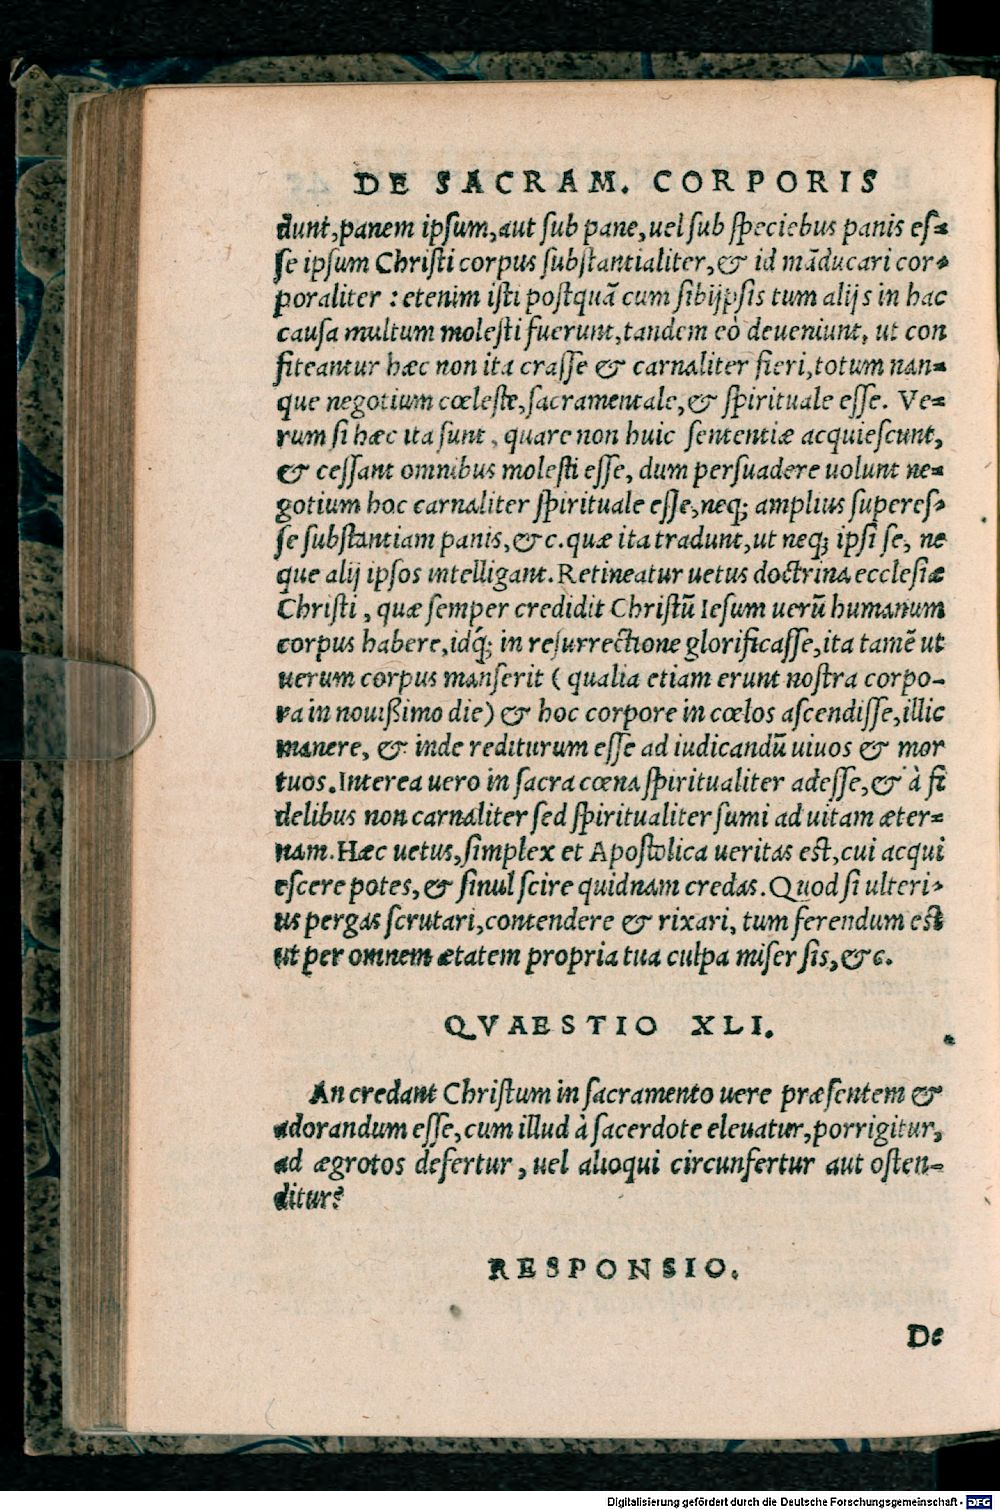 DE SACRAM. CORPORIS
dunt, panem ipſum, aut ſub pane, uel ſub ſpeciebus panis eſ-
ſe ipſum Chriſti corpus ſubſtantialiter, & id mãducari cor-
poraliter: etenim iſti poſtquã cum ſibijpſis tum alijs in hac
cauſa multum moleſti fuerunt, tandem eò deueniunt, ut con
fiteantur hæc non ita craſſe & carnaliter fieri, totum nan-
que negotium cœleſte, ſacramentale, & ſpirituale eſſe. Ve-
rum ſi hæc ita ſunt, quare non huic ſententiæ acquieſcunt,
& ceſſant omnibus moleſti eſſe, dum perſuadere uolunt ne-
gotium hoc carnaliter ſpirituale eſſe, neq; amplius ſupereſ-
ſe ſubſtantiam panis, &c. quæ ita tradunt, ut neq; ipſi ſe, ne
que alij ipſos intelligant. Retineatur uetus doctrina eccleſiæ
Chriſti, quæ ſemper credidit Chriſtũ Ieſum uerũ humanum
corpus habere, idq́; in reſurrectione glorificaſſe, ita tamẽ ut
uerum corpus manſerit (qualia etiam erunt noſtra corpo-
ra in nouißimo die) & hoc corpore in cœlos aſcendiſſe, illic
manere, & inde rediturum eſſe ad iudicandũ uiuos & mor
tuos. Interea uero in ſacra cœna ſpiritualiter adeſſe, & à fi
delibus non carnaliter ſed ſpiritualiter ſumi ad uitam æter-
nam. Hæc uetus, ſimplex et Apoſtolica ueritas eſt, cui acqui
eſcere potes, & ſinul ſcire quidnam credas. Quod ſi ulteri-
us pergas ſcrutari, contendere & rixari, tum ferendum eſt
ut per omnem ætatem propria tua culpa miſer ſis, &c.
QVAESTIO XLI.
An credant Chriſtum in ſacramento uere præſentem &
adorandum eſſe, cum illud à ſacerdote eleuatur, porrigitur,
ad ægrotos defertur, uel alioqui circunfertur aut oſten-
ditur?
RESPONSIO.
De
Digitalisierung gefördert durch die Deutsche Forschungsgemeinschaft - DFG